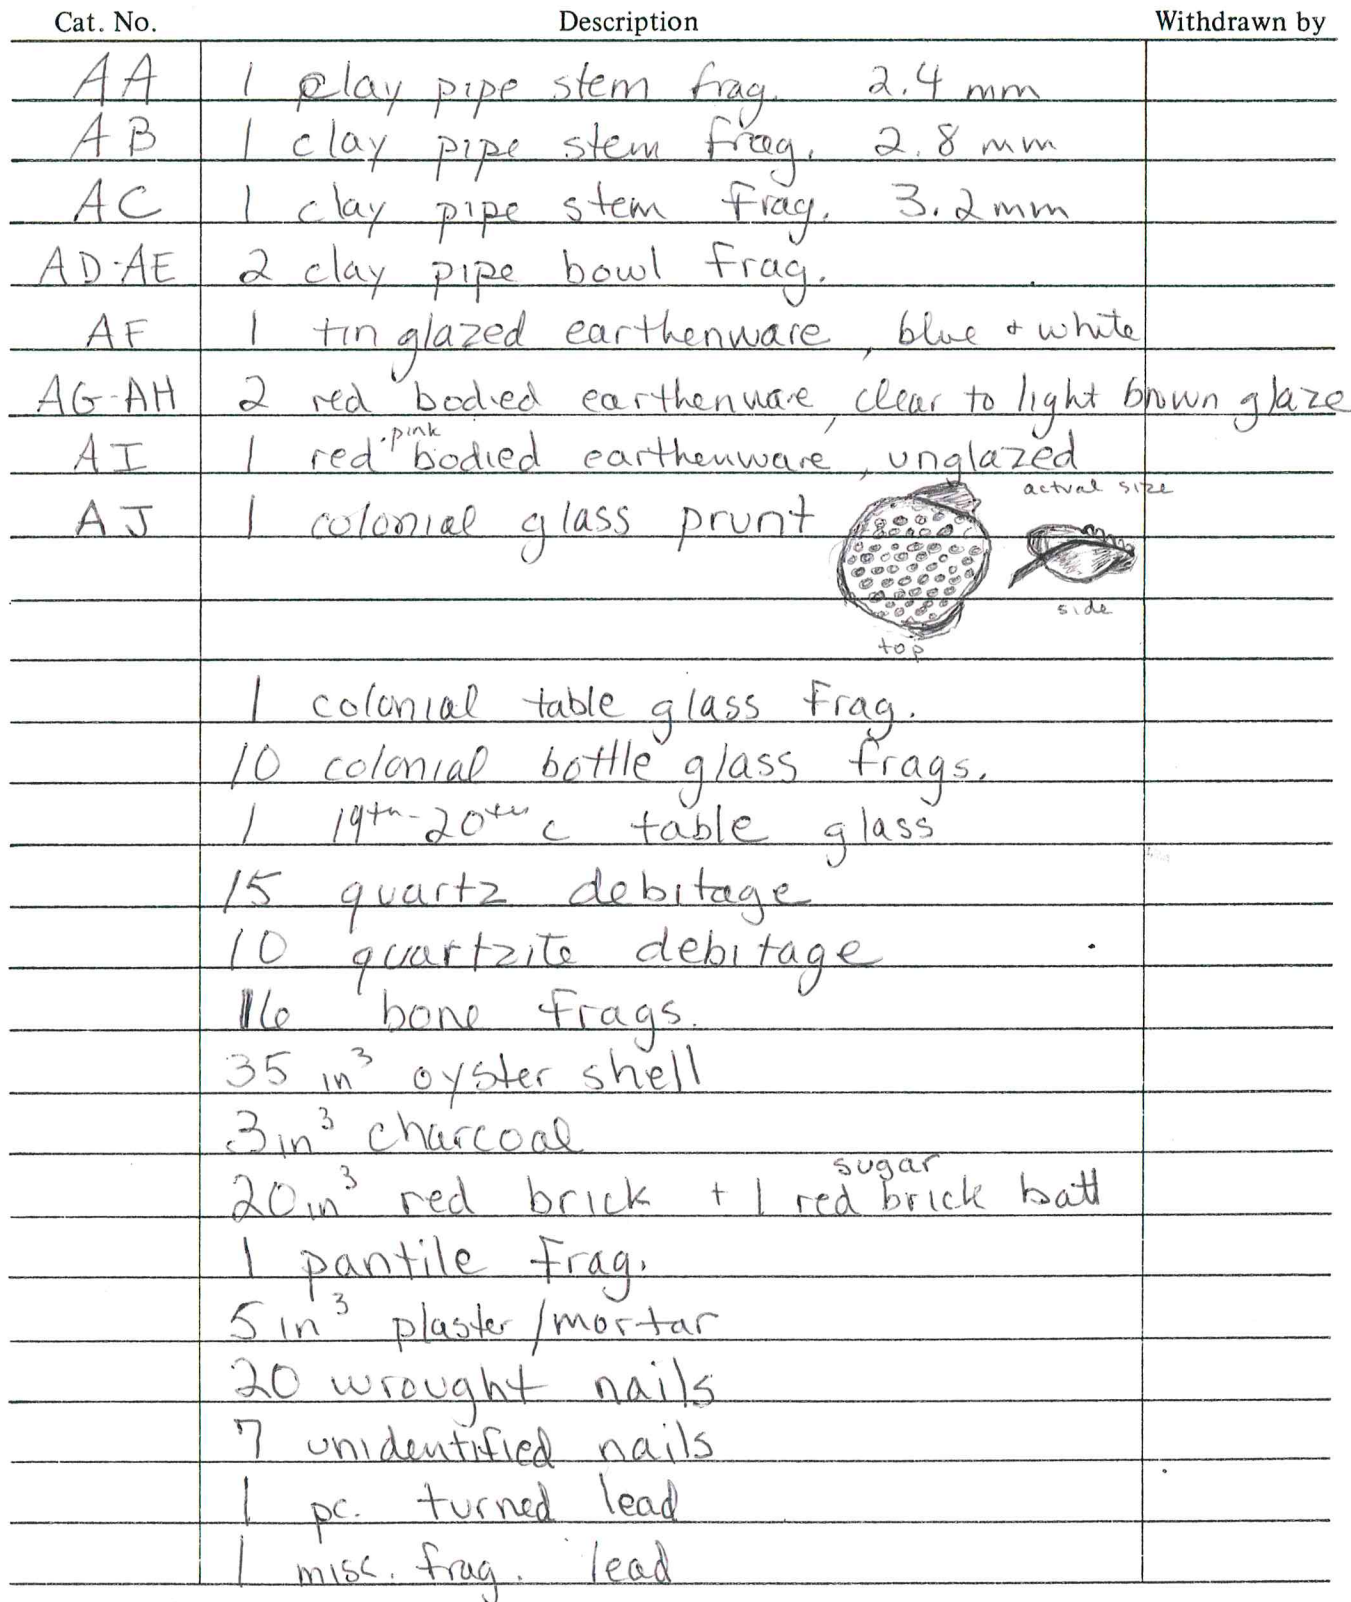 Cat. No. Description Withdrawn by
AA 1 clay pipe stem frag. 2.4 mm
AB 1 clay pipe stem frag. 2.8 mm
AC 1 clay pipe stem frag. 3.2mm
AD-AE 2 clay pipe bowl frag.
AF 1 tin glazed earthenware, blue + white
AG-AH 2 red bodied earthenware, clear to light brown glaze
AI 1 red-pink bodied earthenware, unglazed
actual size
AJ 1 colonial glass prunt
side
top
1 colonial table glass frag.
10 colonial bottle glass frags.
1 19th-20th c table glass
15 quartz debitage
10 quartzite debitage
16 bone frags.
35 in³ oyster shell
3in³ charcoal
20in³ red brick + 1 red sugar brick batt
1 pantile frag.
5 in³ plaster/mortar
20 wrought nails
7 unidentified nails
1 pc. turned lead
1 misc. frag. lead